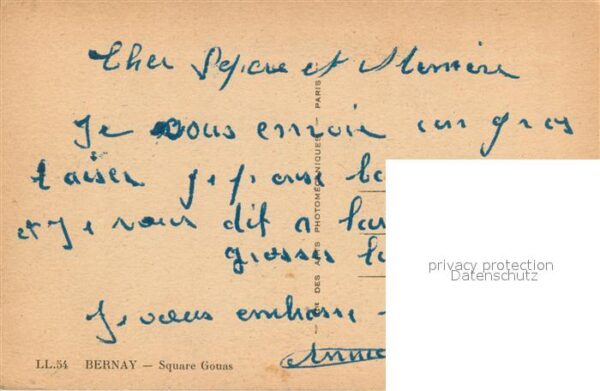 Cher Pepere et Memère
Je vous envoie un gros
baiser je pense
et Je vous dit a
grosses
Je vous embrasse -
Annie
LL.54 BERNAY — Square Gouas
DES ARTS PHOTOMÉCANIQUES — PARIS
privacy protection
Datenschutz